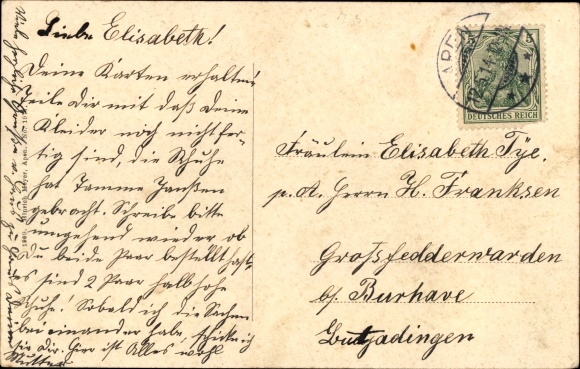 Liebe Elisabeth!
Deine Karten erhalten
teile Dir mit daß Deine
Kleider noch nicht fer-
tig sind, die Schuhe
hat Tamme Janßen
gebracht. Schreibe bitte
umgehend wieder ob
Du beide Paar bestellt hast.
es sind 2 Paar halbhohe
Schuhe! Sobald ich die Sachen
bei einander habe, schicke ich
sie Dir. Hier ist Alles wohl
Mutter
Heinrich Meyer, Apen.
APEN
14
5
DEUTSCHES REICH
Fräulein Elisabeth Tye.
p. A. Herrn H. Franksen
Großfedderwarden
bs. Burhave
Butjadingen